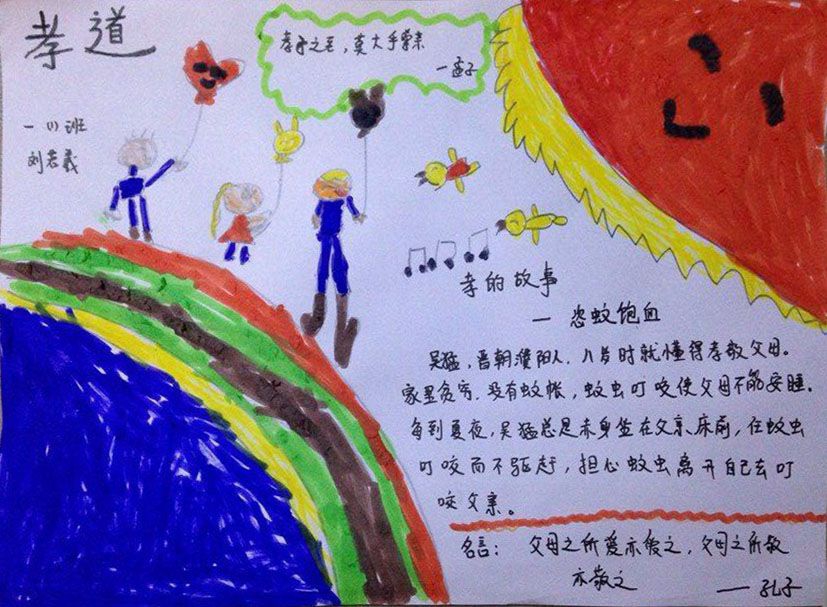 孝道
孝子之至，莫大乎尊亲
—孟子
一(1)班
刘若羲
孝的故事
— 恣蚊饱血
吴猛，晋朝濮阳人，八岁时就懂得孝敬父母。
家里贫穷，没有蚊帐，蚊虫叮咬使父母不能安睡。
每到夏夜，吴猛总是赤身坐在父亲床前，任蚊虫
叮咬而不驱赶，担心蚊虫离开自己去叮
咬父亲。
名言： 父母之所爱亦爱之，父母之所敬
亦敬之
——孔子